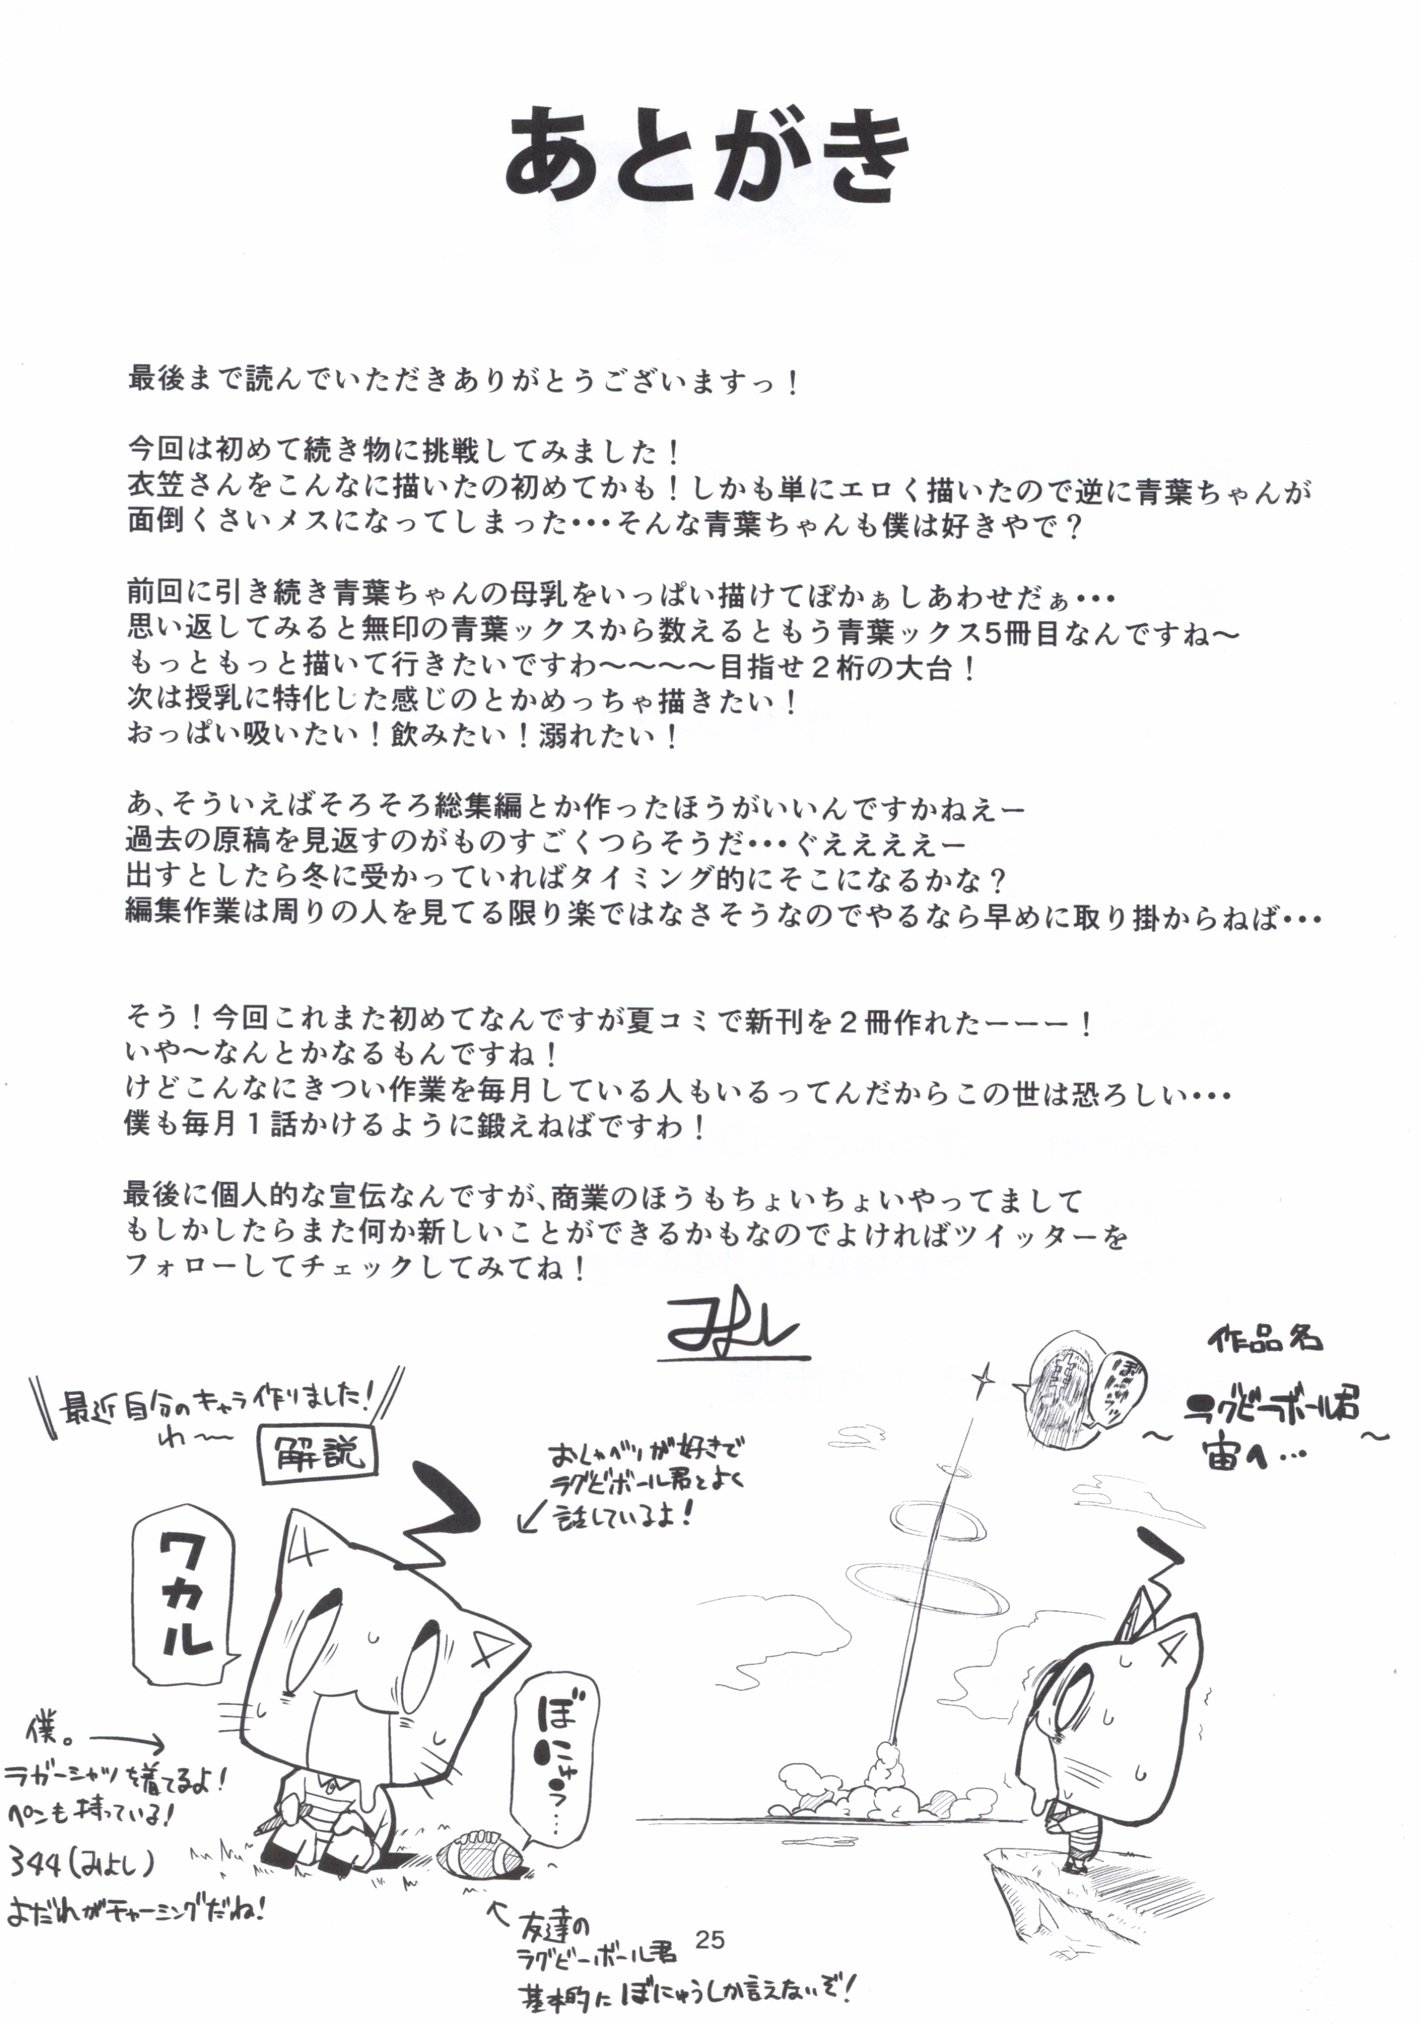 あとがき
最後まで読んでいただきありがとうございますっ！
今回は初めて続き物に挑戦してみました！
衣笠さんをこんなに描いたの初めてかも！しかも単にエロく描いたので逆に青葉ちゃんが
面倒くさいメスになってしまった・・・そんな青葉ちゃんも僕は好きやで？
前回に引き続き青葉ちゃんの母乳をいっぱい描けてぼかぁしあわせだぁ・・・
思い返してみると無印の青葉ックスから数えるともう青葉ックス5冊目なんですね～
もっともっと描いて行きたいですわ～～～～目指せ２桁の大台！
次は授乳に特化した感じのとかめっちゃ描きたい！
おっぱい吸いたい！飲みたい！溺れたい！
あ、そういえばそろそろ総集編とか作ったほうがいいんですかねえー
過去の原稿を見返すのがものすごくつらそうだ・・・ぐええええー
出すとしたら冬に受かっていればタイミング的にそこになるかな？
編集作業は周りの人を見てる限り楽ではなさそうなのでやるなら早めに取り掛からねば・・・
そう！今回これまた初めてなんですが夏コミで新刊を２冊作れたーーー！
いや～なんとかなるもんですね！
けどこんなにきつい作業を毎月している人もいるってんだからこの世は恐ろしい・・・
僕も毎月１話かけるように鍛えねばですわ！
最後に個人的な宣伝なんですが、商業のほうもちょいちょいやってまして
もしかしたらまた何か新しいことができるかもなのでよければツイッターを
フォローしてチェックしてみてね！
みよし
最近自分のキャラ作りました！
わ〜
解説
ワカル
おしゃべりが好きで
ラグビボール君とよく
話しているよ！
僕。
ラガーシャツを着てるよ！
ペンも持っている！
344（みよし）
よだれがチャーミングだね！
ぼにゅう…
友達の
ラグビーボール君
基本的にぼにゅうしか言えないぞ！
作品名
～ラグビーボール君
宙へ…～
25